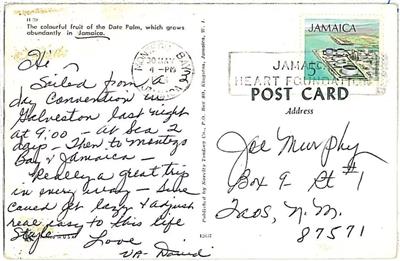 H 79
The colourful fruit of the Date Palm, which grows
abundantly in Jamaica.
Hi
Sailed from
day Convention in
Galveston last night
at 9:00 - At Sea 2
days - Then to Montego
Bay Jamaica -
Really a great trip
in every way - Sure
could get lazy & adjust
real easy to this life
Style Love
David
MONTEGO BAY
4 - PM
JAMAICA
Published by Novelty Trading Co., P.O. Box 80, Kingston, Jamaica, W. I.
JAMAICA
5c
JAMAICA
HEART FOUNDATION
POST CARD
Address
Joe Murphy
Box 9 Rt #1
Taos, N.M.
87571